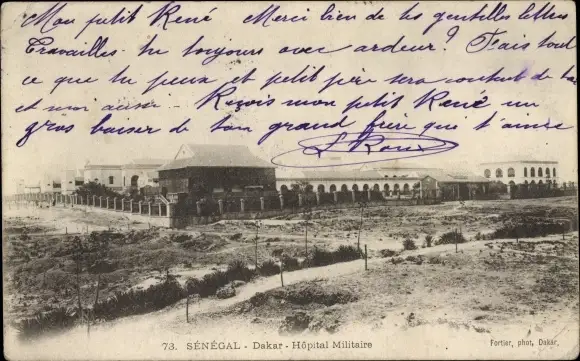 Mon petit René Merci bien de tes gentilles lettres
Travailles-tu toujours avec ardeur? Fais tout
ce que tu peux et petit père sera content de toi
et moi aussi. Reçois mon petit René un
gros baiser de ton grand frère qui t'aime
L Roux
73. SÉNÉGAL - Dakar - Hôpital Militaire
Fortier, phot, Dakar.